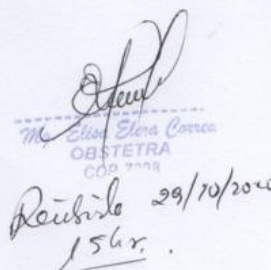 Mg. Elisa Elera Correa
OBSTETRA
COP
Recibido 29/10/20
15hr.